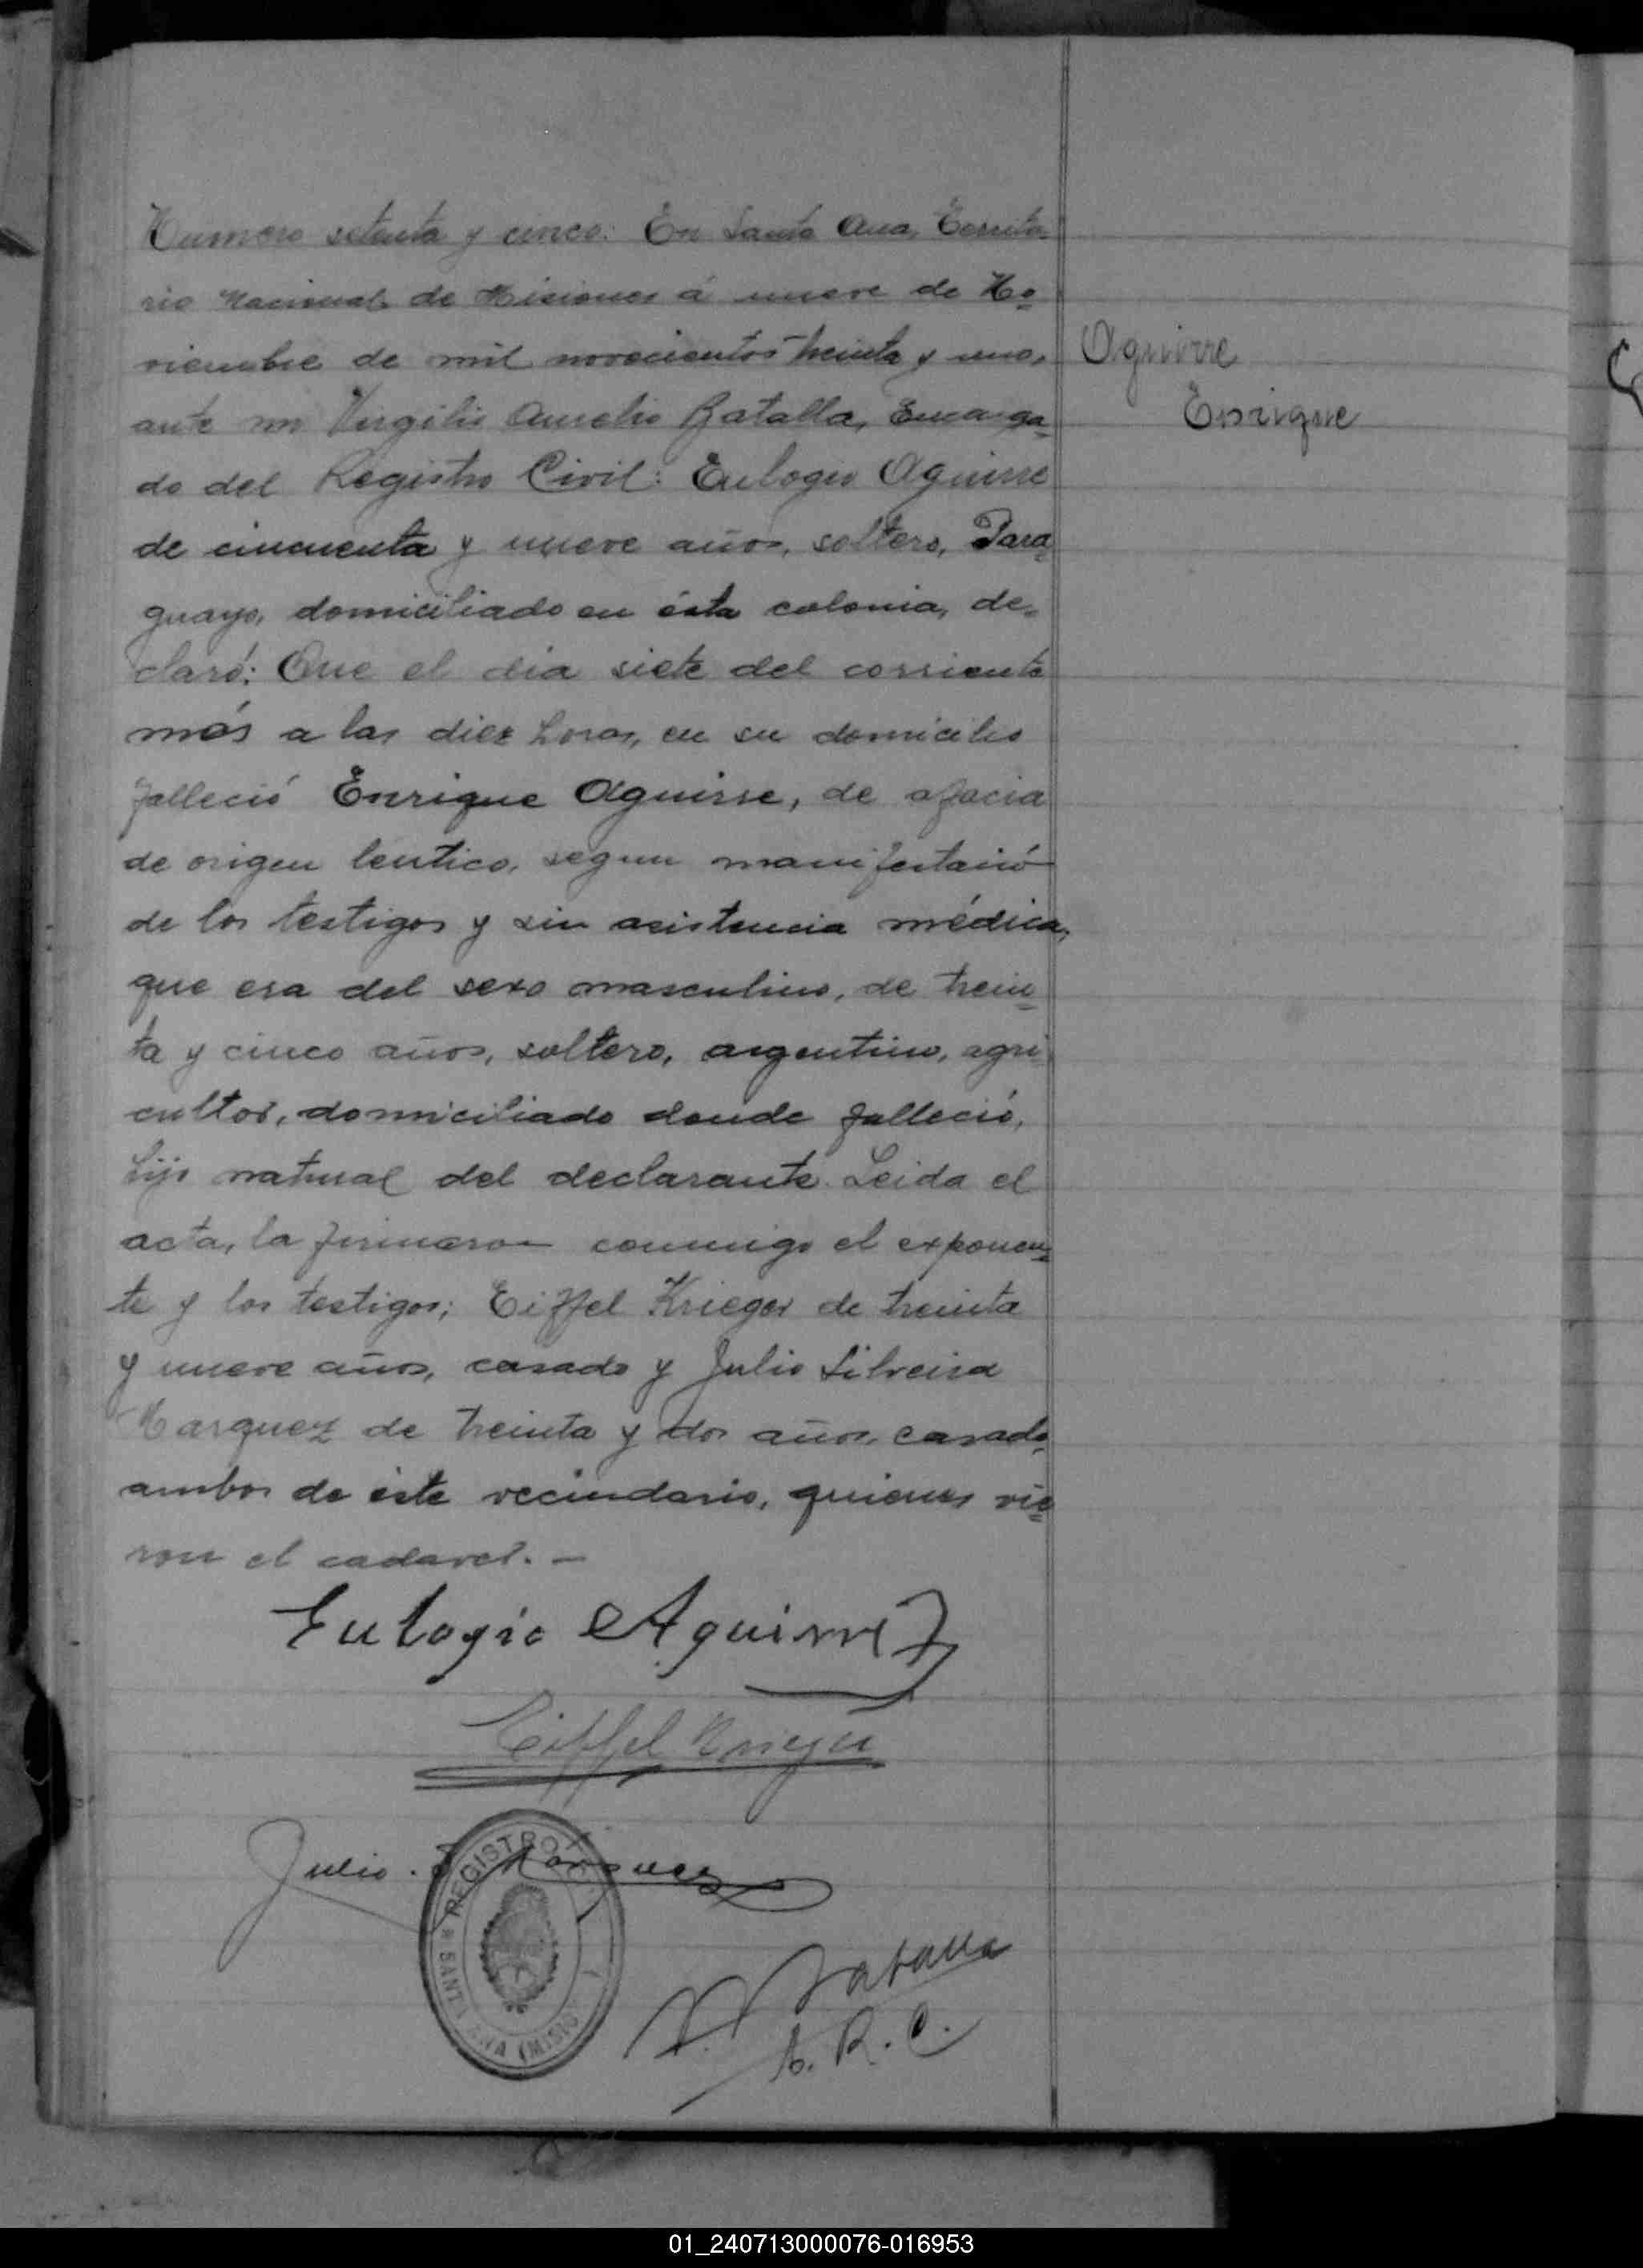 Numero setenta y cinco: En Santa Ana, Territo-
rio Nacional de Misiones á nueve de No=
viembre de mil novecientos treinta y uno,
ante mi Virgilio Aurelio Batalla, Encarga=
do del Registro Civil: Eulogio Aguirre
de cincuenta y nueve años, soltero, Para=
guayo, domiciliado en ésta colonia, de=
claró: Que el dia siete del corriente
més a las diez horas, en su domicilio
falleció Enrique Aguirre, de afacia
de origen leutico, segun manifestació
de los testigos y sin asistencia médica,
que era del sexo masculino, de trein=
ta y cinco años, soltero, argentino, agri
cultor, domiciliado donde falleció,
hijo natural del declarante. Leida el
acta, la firmaron conmigo el exponen=
te y los testigos; Eiffel Krieger de treinta
y nueve años, casado y Julio Silveira
Marquez de treinta y dos años, casado,
ambos de éste vecindario, quienes vie=
ron el cadaver. —
Aguirre
Enrique
Eulogio Aguirre
Eiffel Krieger
Julio. S. Marquez
REGISTRO
* SANTA ANA (MISIO
Batalla
E. R. C.
01_240713000076-016953